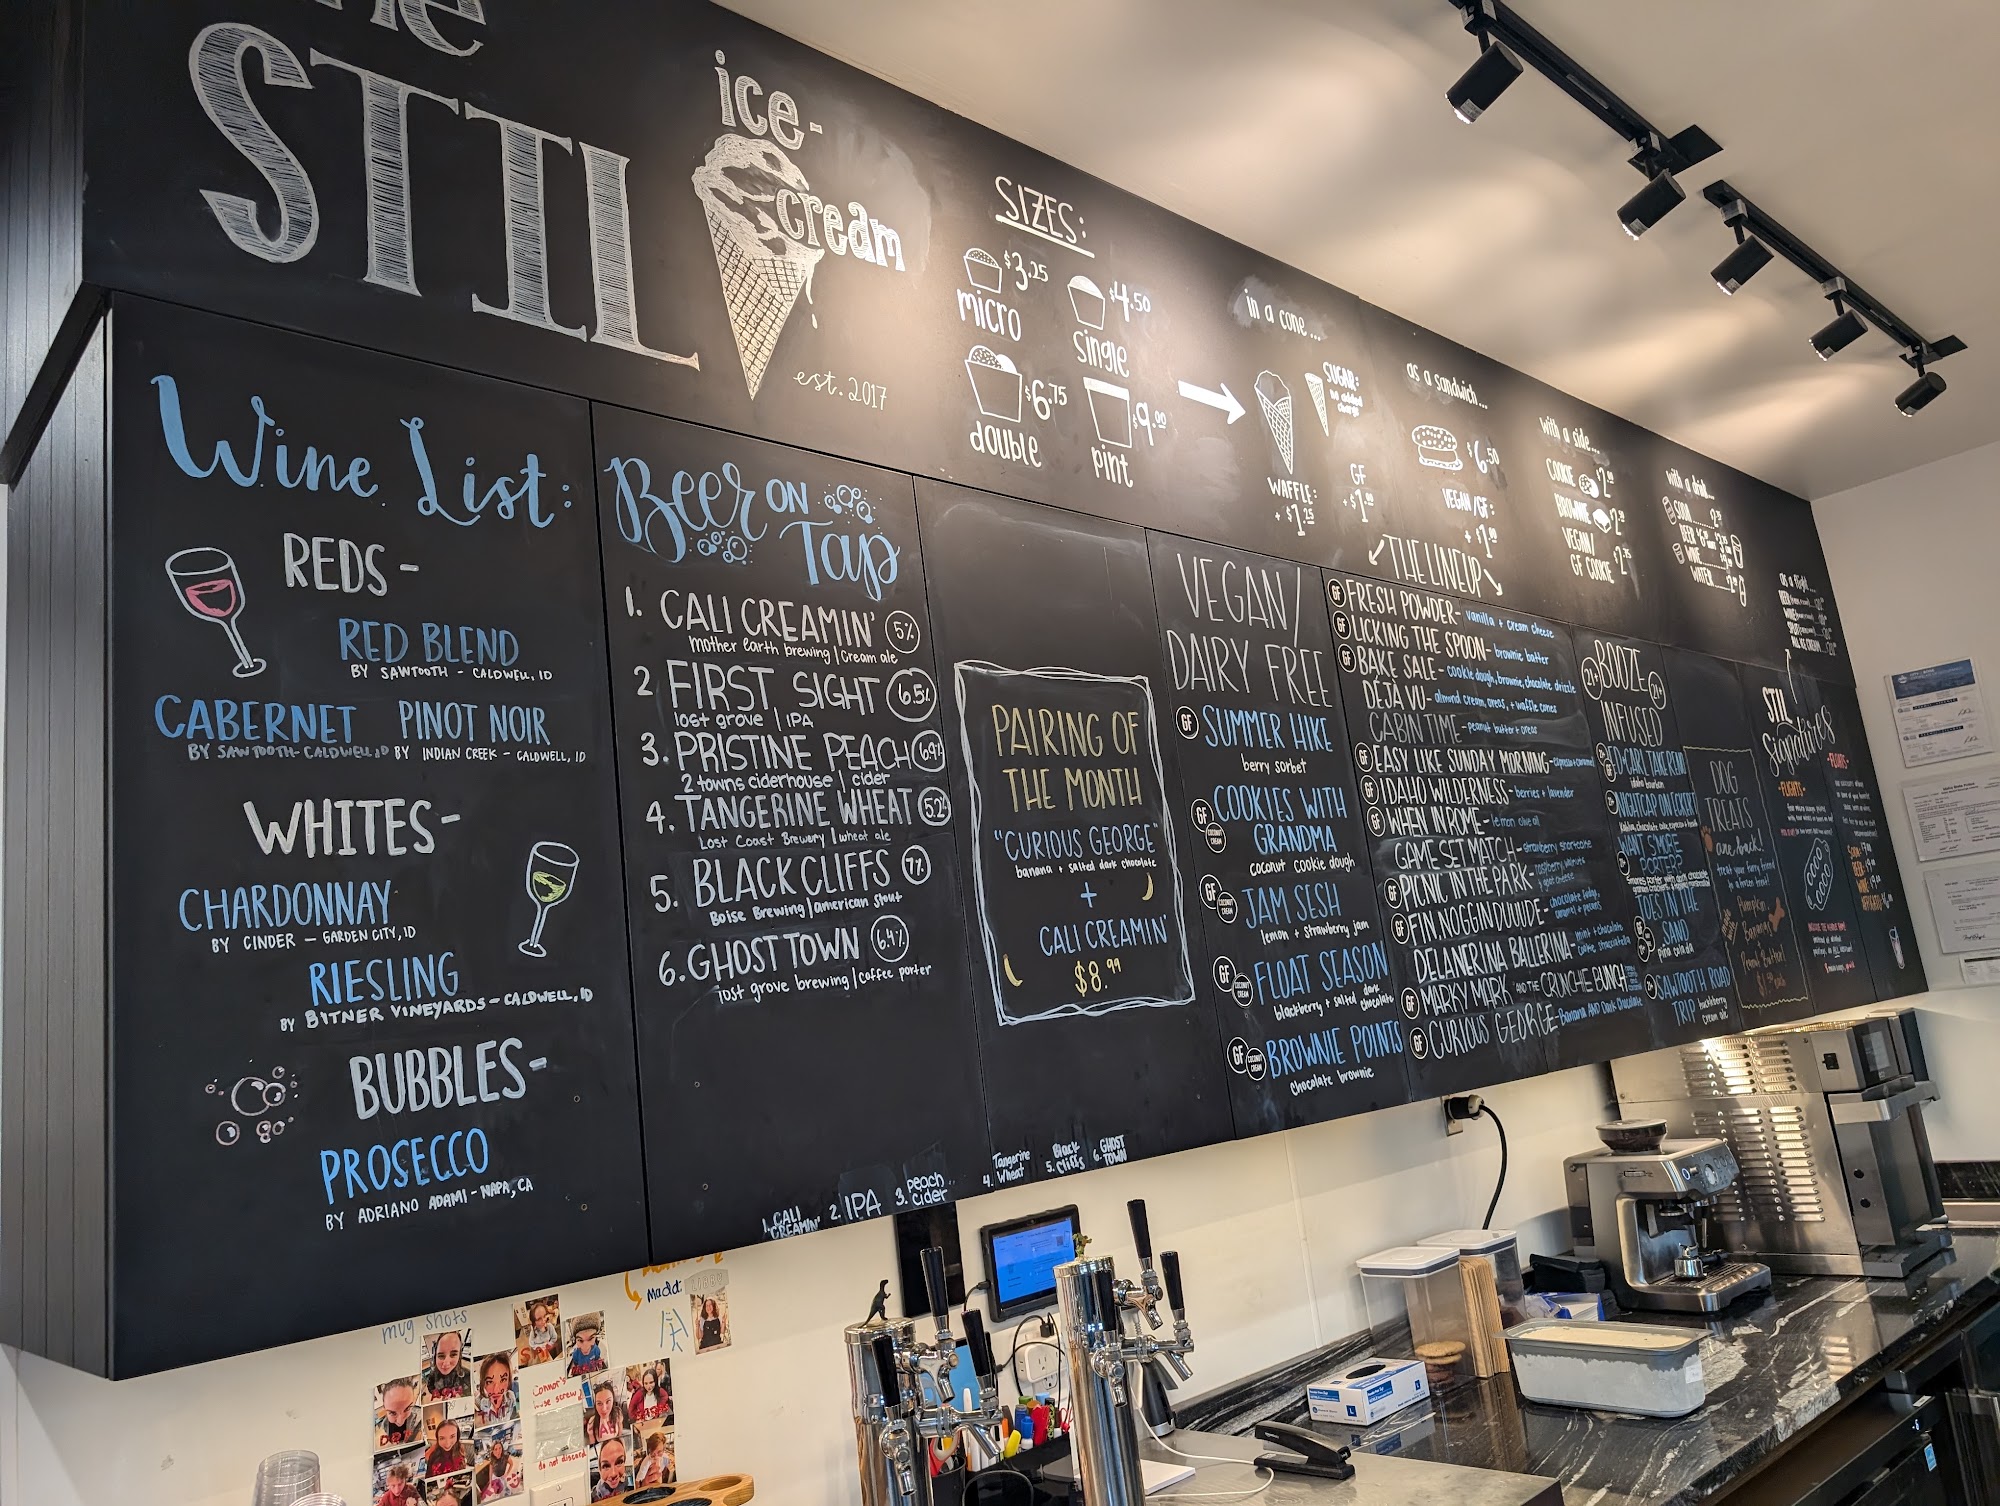 The
STIL
ice-
cream
est. 2017
SIZES:
$3.25
micro
$4.50
single
$6.75
double
$9.00
pint
in a cone...
WAFFLE:
+ $1.25
SUGAR:
no added
charge
GF
+ $1.00
as a sandwich...
$6.50
VEGAN/GF:
+ $1.00
with a side...
COOKIE
BROWNIE
VEGAN/
GF COOKIE
with a drink...
SODA
BEER
WINE
WATER
as a flight...
Wine List:
REDS-
RED BLEND
BY SAWTOOTH - CALDWELL, ID
CABERNET
BY SAWTOOTH - CALDWELL, ID
PINOT NOIR
BY INDIAN CREEK - CALDWELL, ID
WHITES-
CHARDONNAY
BY CINDER - GARDEN CITY, ID
RIESLING
BY BITNER VINEYARDS - CALDWELL, ID
BUBBLES-
PROSECCO
BY ADRIANO ADAMI - NAPA, CA
Beer ON
Tap
1. CALI CREAMIN' 5%
mother earth brewing | cream ale
2 FIRST SIGHT 6.5%
lost grove | IPA
3. PRISTINE PEACH 6.9%
2 towns ciderhouse | cider
4. TANGERINE WHEAT 5.2
Lost Coast Brewery | wheat ale
5. BLACK CLIFFS 7%
Boise Brewing | american stout
6. GHOST TOWN 6.4%
lost grove brewing | coffee porter
1. CALI CREAMIN'
2. IPA
3. peach cider
4. Tangerine Wheat
5. Black Cliffs
6. GHOST TOWN
PAIRING OF
THE MONTH
"CURIOUS GEORGE"
banana + salted dark chocolate
+
CALI CREAMIN'
$8.99
VEGAN/
DAIRY FREE
GF SUMMER HIKE
berry sorbet
GF COCONUT CREAM COOKIES WITH
GRANDMA
coconut cookie dough
GF COCONUT CREAM JAM SESH
lemon + strawberry jam
GF COCONUT CREAM FLOAT SEASON
blackberry + salted dark
chocolate
GF COCONUT CREAM BROWNIE POINTS
chocolate brownie
THE LINEUP
GF FRESH POWDER- vanilla + cream cheese
GF LICKING THE SPOON- brownie batter
GF BAKE SALE- cookie dough, brownie, chocolate drizzle
DÉJÀ VU- almond cream, oreos, + waffle cones
CABIN TIME- peanut butter + oreos
GF EASY LIKE SUNDAY MORNING- espresso + caramel
GF IDAHO WILDERNESS- berries + lavender
GF WHEN IN ROME- lemon olive oil
GAME SET MATCH- strawberry shortcake
GF PICNIC IN THE PARK- raspberry walnuts
+ goat cheese
GF FIN. NOGGIN DUUUDE- chocolate fudge,
caramel + pecans
DELANERINA BALLERINA- mint + chocolate
cookie
GF MARKY MARK AND THE CRUNCHIE BUNCH
GF CURIOUS GEORGE- Banana AND Dark Chocolate
21+ BOOZE 21+
INFUSED
idaho bourbon
WANT S'MORE
PORTER?
TOES IN THE
SAND
piña colada
SAWTOOTH ROAD
TRIP huckleberry
cream ale
DOG
TREATS
are back!
treat your furry friend
to a frozen treat!
Pumpkin
Banana
Peanut Butter!
STIL
Signatures
-FLIGHTS-
-FLOATS-
mug shots
Madd:
Connor's
nose screw
do not discard